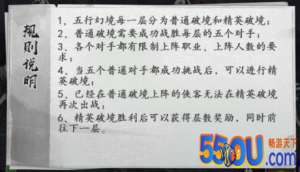 规则说明
1、五行幻境每一层分为普通破境和精英破境;
2、普通破境需要成功战胜每层的五个对手;
3、各个对手都有限制上阵职业、上阵人数的要
求;
4、当五个普通对手都成功挑战后,可以进行精
英破境;
5、已经在普通破境上阵的侠客无法在精英破境
再次出战;
6、精英破境胜利后可以获得层数奖励,同时前
往下一层。
畅游天下
55OU.com